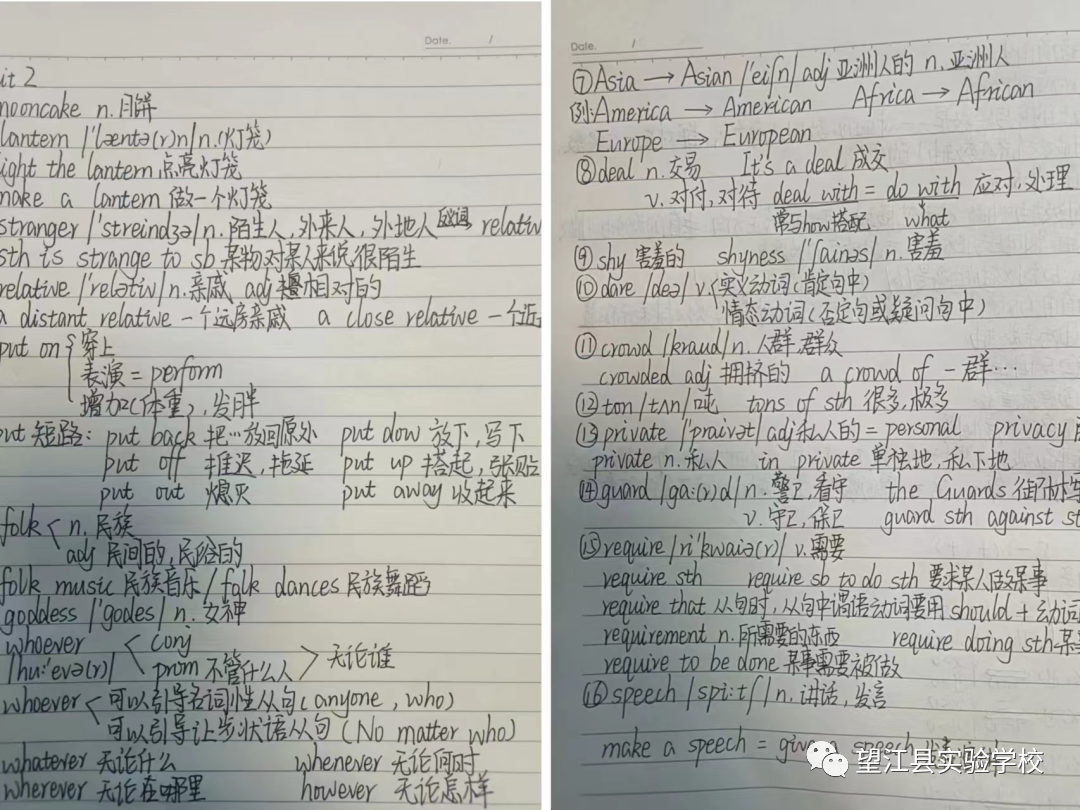 Date. /
it 2
mooncake n. 月饼
lantern /'læntə(r)/ n. (灯笼)
ight the lantern 点亮灯笼
make a lantern 做一个灯笼
stranger /'streindʒə/ n. 陌生人, 外来人, 外地人 relativ
sth is strange to sb 某物对某人来说很陌生
relative /'relətiv/ n. 亲戚 adj 相对的
a distant relative 一个远房亲戚 a close relative 一个近
put on { 穿上
表演 = perform
增加(体重), 发胖
put 短路: put back 把…放回原处 put dow 放下, 写下
put off 推迟, 拖延 put up 搭起, 张贴
put out 熄灭 put away 收起来
folk < n. 民族
adj 民间的, 民俗的
folk music 民族音乐 / folk dances 民族舞蹈
goddess /'godes/ n. 女神
whoever < conj
/hu:'evə(r)/ pron 不管什么人 > 无论谁
whoever < 可以引导名词性从句 (anyone, who)
可以引导让步状语从句 (No matter who)
whatever 无论什么 whenever 无论何时
wherever 无论在哪里 however 无论怎样
Date. /
⑦ Asia → Asian /'eiʃn/ adj 亚洲人的 n. 亚洲人
例: America → American Africa → African
Europe → European
⑧ deal n. 交易 It's a deal 成交
v. 对付, 对待 deal with = do with 应对, 处理
常与how搭配 what
⑨ shy 害羞的 shyness /'ʃainəs/ n. 害羞
⑩ dare /deə/ v. { 实义动词 (肯定句中)
情态动词 (否定句或疑问句中)
⑪ crowd /kraud/ n. 人群, 群众
crowded adj 拥挤的 a crowd of 一群…
⑫ ton /tʌn/ 吨 tons of sth 很多, 极多
⑬ private /'praivət/ adj 私人的 = personal privacy
private n. 私人 in private 单独地, 私下地
⑭ guard /ga:(r)d/ n. 警卫, 看守 the Guards 御林军
v. 守卫, 保卫 guard sth against st
⑮ require /ri'kwaiə(r)/ v. 需要
require sth require sb to do sth 要求某人做某事
require that 从句时, 从句中谓语动词要用 should + 动词
requirement n. 所需要的东西 require doing sth 某
require to be done 某事需要被做
⑯ speech /spi:tʃ/ n. 讲话, 发言
make a speech = give a speech
望江县实验学校